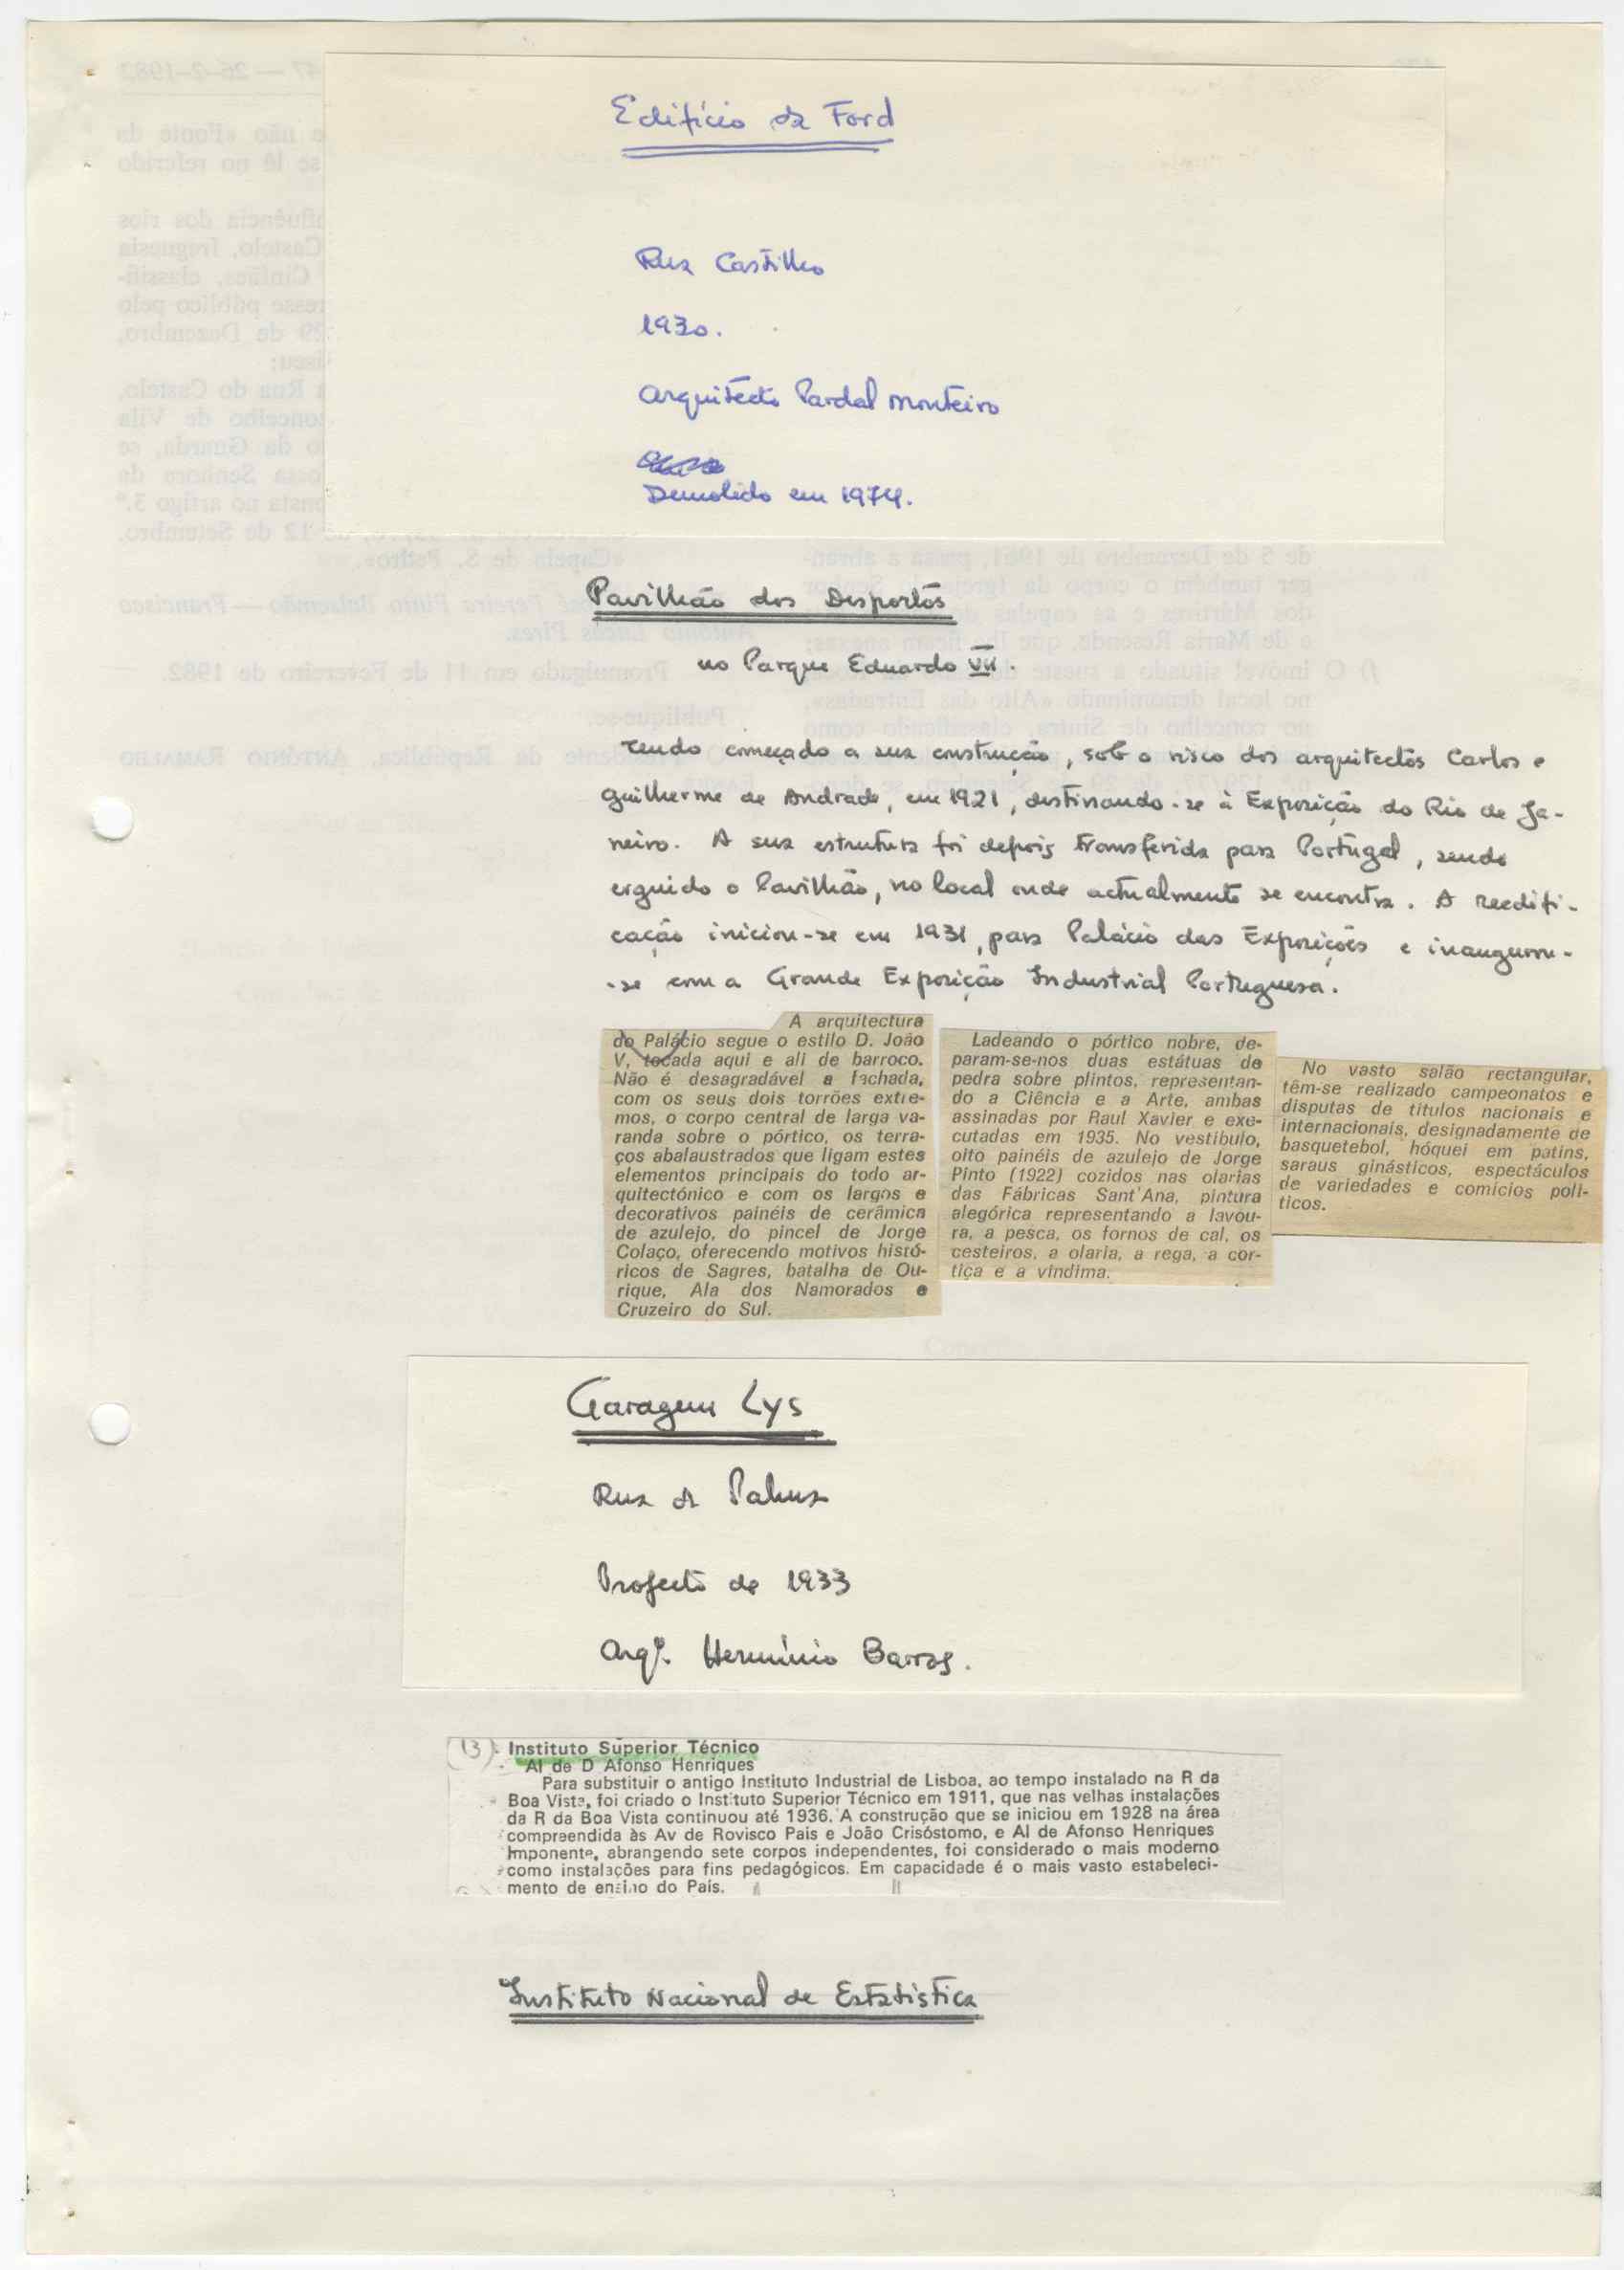 Edifício da Ford
Rua Castilho
1930.
Arquitecto Pardal Monteiro
Demolido em 1974.
Pavilhão dos Desportos
no Parque Eduardo VII.
Tendo começado a sua construção, sob o risco dos arquitectos Carlos e
Guilherme de Andrade, em 1921, destinando-se à Exposição do Rio de Ja-
neiro. A sua estrutura foi depois transferida para Portugal, sendo
erguido o Pavilhão, no local onde actualmente se encontra. A reedifi-
cação iniciou-se em 1931, para Palácio das Exposições e inaugurou-
-se com a Grande Exposição Industrial Portuguesa.
A arquitectura
do Palácio segue o estilo D. João
V, tocada aqui e ali de barroco.
Não é desagradável a fachada,
com os seus dois torrões extre-
mos, o corpo central de larga va-
randa sobre o pórtico, os terra-
ços abalaustrados que ligam estes
elementos principais do todo ar-
quitectónico e com os largos e
decorativos painéis de cerâmica
de azulejo, do pincel de Jorge
Colaço, oferecendo motivos histó-
ricos de Sagres, batalha de Ou-
rique, Ala dos Namorados e
Cruzeiro do Sul.
Ladeando o pórtico nobre, de-
param-se-nos duas estátuas de
pedra sobre plintos, representan-
do a Ciência e a Arte, ambas
assinadas por Raul Xavier e exe-
cutadas em 1935. No vestíbulo,
oito painéis de azulejo de Jorge
Pinto (1922) cozidos nas olarias
das Fábricas Sant'Ana, pintura
alegórica representando a lavou-
ra, a pesca, os fornos de cal, os
cesteiros, a olaria, a rega, a cor-
tiça e a vindima.
No vasto salão rectangular,
têm-se realizado campeonatos e
disputas de títulos nacionais e
internacionais, designadamente de
basquetebol, hóquei em patins,
saraus ginásticos, espectáculos
de variedades e comícios polí-
ticos.
Garagem Lys
Rua da Palma
Projecto de 1933
Arqº. Hermínio Barros.
(13) Instituto Superior Técnico
Al de D Afonso Henriques
Para substituir o antigo Instituto Industrial de Lisboa, ao tempo instalado na R da
Boa Vista, foi criado o Instituto Superior Técnico em 1911, que nas velhas instalações
da R da Boa Vista continuou até 1936. A construção que se iniciou em 1928 na área
compreendida às Av de Rovisco Pais e João Crisóstomo, e Al de Afonso Henriques
Imponente, abrangendo sete corpos independentes, foi considerado o mais moderno
como instalações para fins pedagógicos. Em capacidade é o mais vasto estabeleci-
mento de ensino do País.
Instituto Nacional de Estatística